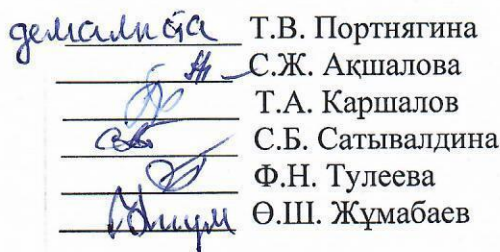 демалыста Т.В. Портнягина
С.Ж. Ақшалова
Т.А. Каршалов
С.Б. Сатывалдина
Ф.Н. Тулеева
Ө.Ш. Жұмабаев